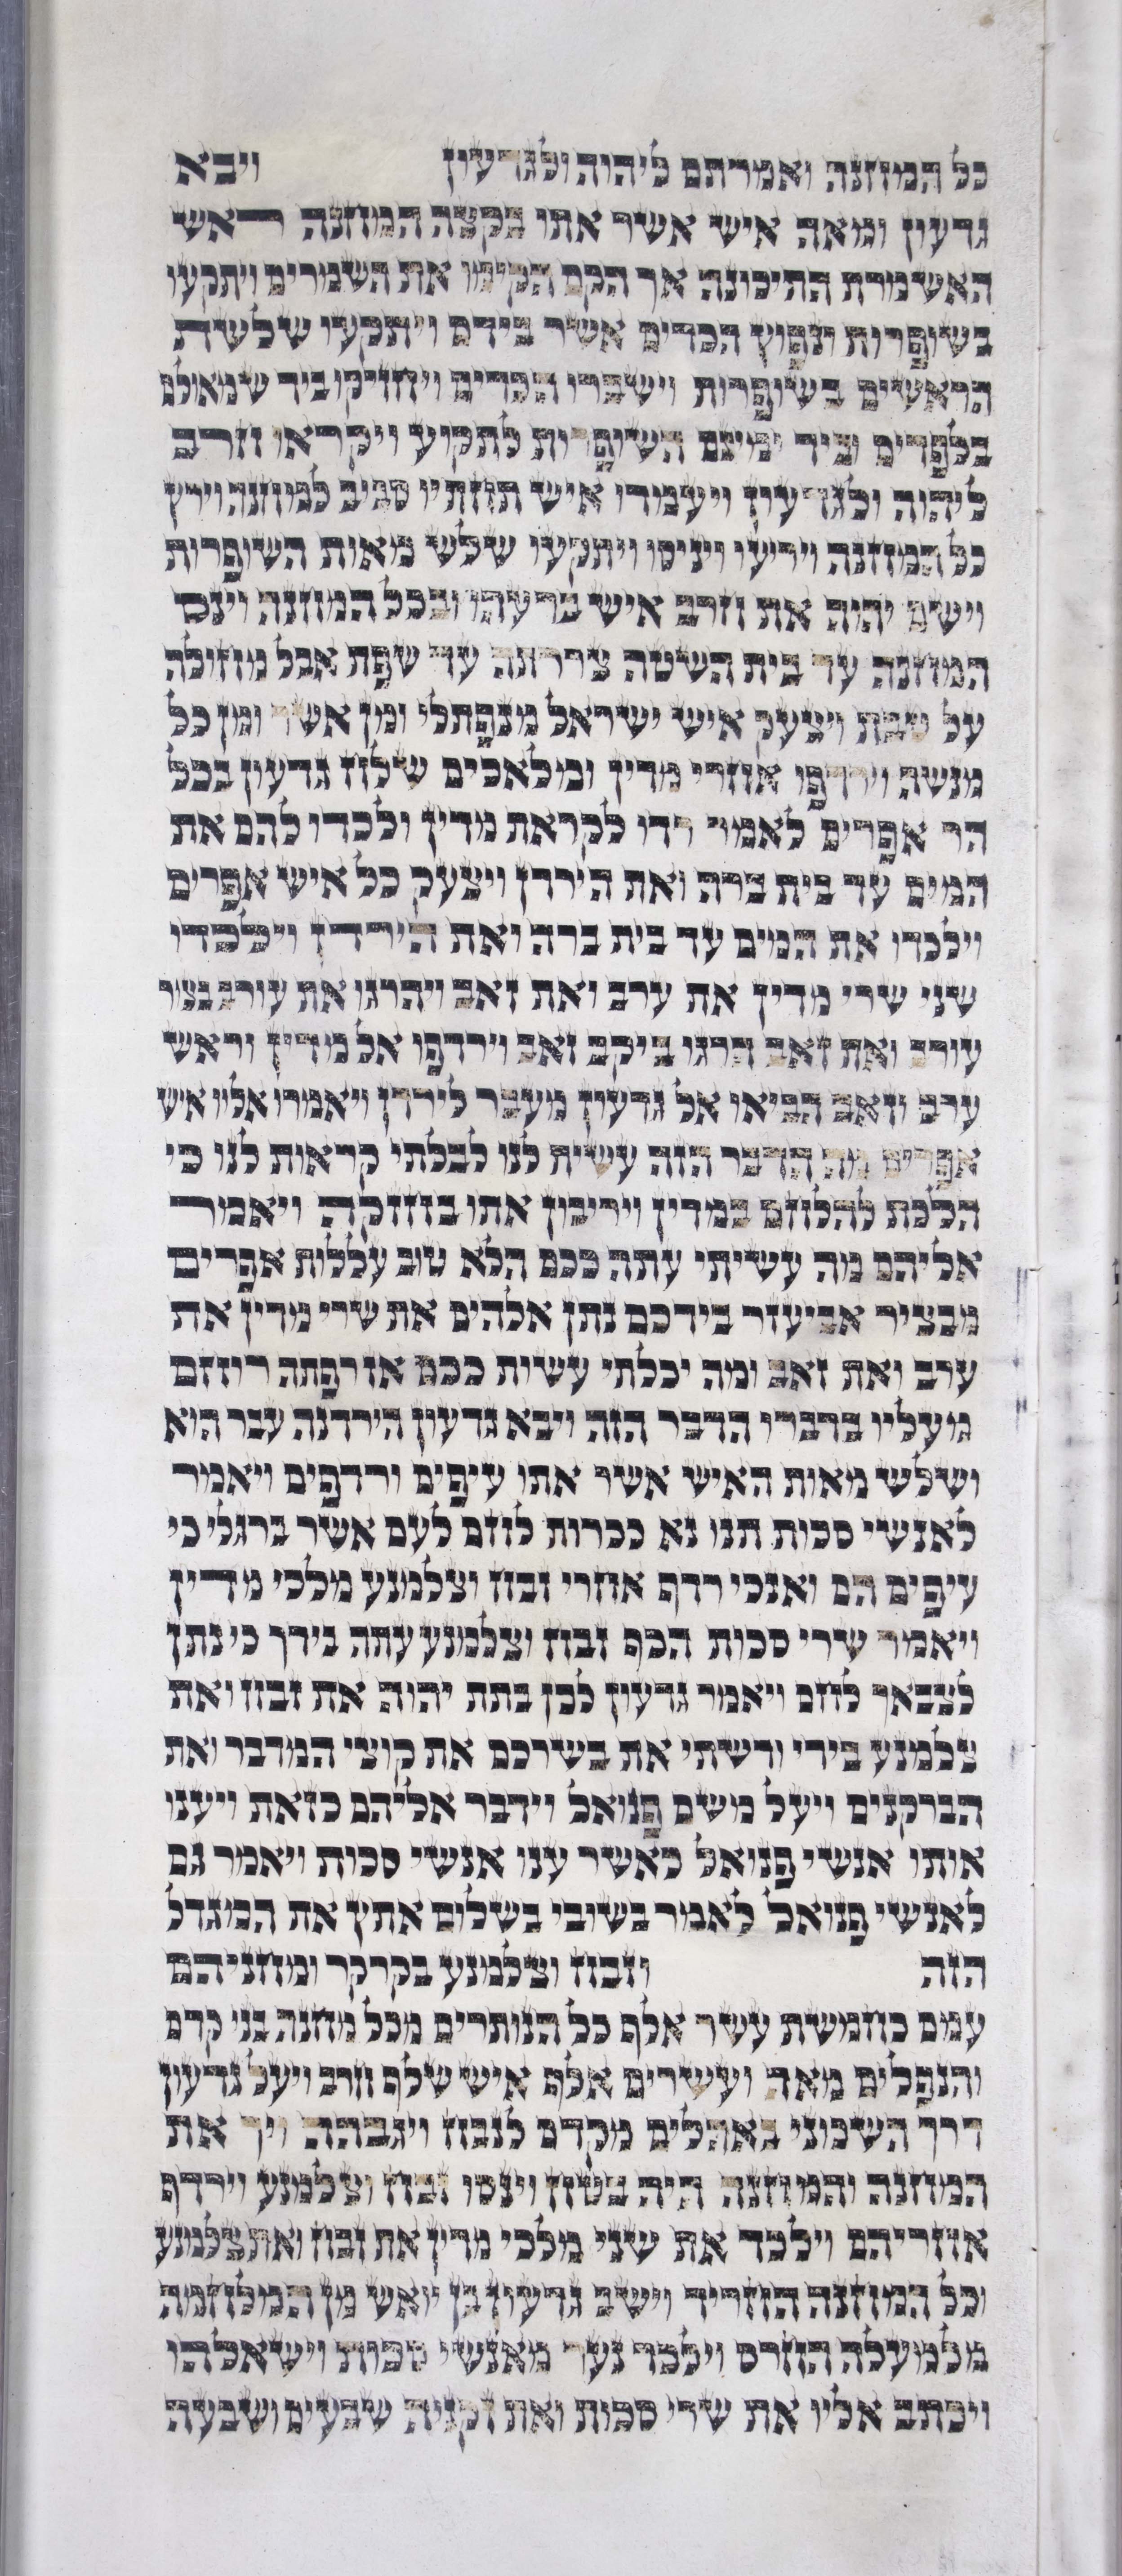 כל המחנה ואמרתם ליהוה ולגדעון ויבא
גדעון ומאה איש אשר אתו בקצה המחנה ראש
האשמרת התיכונה אך הקם הקימו את השמרים ויתקעו
בשופרות ונפוץ הכדים אשר בידם ויתקעו שלשת
הראשים בשופרות וישברו הכדים ויחזיקו ביד שמאולם
בלפדים וביד ימינם השופרות לתקוע ויקראו חרב
ליהוה ולגדעון ויעמדו איש תחתיו סביב למחנה וירץ
כל המחנה ויריעו ויניסו ויתקעו שלש מאות השופרות
וישם יהוה את חרב איש ברעהו ובכל המחנה וינס
המחנה עד בית השטה צררתה עד שפת אבל מחולה
על טבת ויצעק איש ישראל מנפתלי ומן אשר ומן כל
מנשה וירדפו אחרי מדין ומלאכים שלח גדעון בכל
הר אפרים לאמר רדו לקראת מדין ולכדו להם את
המים עד בית ברה ואת הירדן ויצעק כל איש אפרים
וילכדו את המים עד בית ברה ואת הירדן וילכדו
שני שרי מדין את ערב ואת זאב ויהרגו את עורב בצור
עורב ואת זאב הרגו ביקב זאב וירדפו אל מדין וראש
ערב וזאב הביאו אל גדעון מעבר לירדן ויאמרו אליו איש
אפרים מה הדבר הזה עשית לנו לבלתי קראות לנו כי
הלכת להלחם במדין ויריבון אתו בחזקה ויאמר
אליהם מה עשיתי עתה ככם הלא טוב עללות אפרים
מבציר אביעזר בידכם נתן אלהים את שרי מדין את
ערב ואת זאב ומה יכלתי עשות ככם אז רפתה רוחם
מעליו בדברו הדבר הזה ויבא גדעון הירדנה עבר הוא
ושלש מאות האיש אשר אתו עיפים ורדפים ויאמר
לאנשי סכות תנו נא ככרות לחם לעם אשר ברגלי כי
עיפים הם ואנכי רדף אחרי זבח וצלמנע מלכי מדין
ויאמר שרי סכות הכף זבח וצלמנע עתה בידך כי נתן
לצבאך לחם ויאמר גדעון לכן בתת יהוה את זבח ואת
צלמנע בידי ודשתי את בשרכם את קוצי המדבר ואת
הברקנים ויעל משם פנואל וידבר אליהם כזאת ויענו
אותו אנשי פנואל כאשר ענו אנשי סכות ויאמר גם
לאנשי פנואל לאמר בשובי בשלום אתץ את המגדל
הזה וזבח וצלמנע בקרקר ומחניהם
עמם כחמשת עשר אלף כל הנותרים מכל מחנה בני קדם
והנפלים מאה ועשרים אלף איש שלף חרב ויעל גדעון
דרך השכוני באהלים מקדם לנבח ויגבהה ויך את
המחנה והמחנה היה בטח וינסו זבח וצלמנע וירדף
אחריהם וילכד את שני מלכי מדין את זבח ואת צלמנע
וכל המחנה החריד וישב גדעון בן יואש מן המלחמה
מלמעלה החרס וילכד נער מאנשי סכות וישאלהו
ויכתב אליו את שרי סכות ואת זקניה שבעים ושבעה